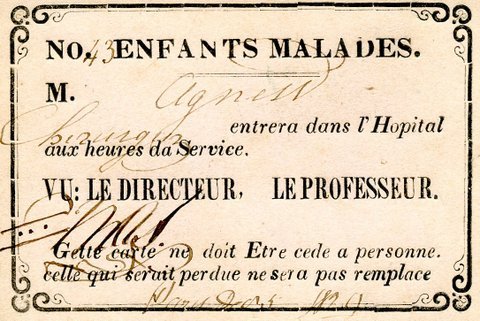 NO. 43 ENFANTS MALADES.
M. Agnell
Chirurgien entrera dans l'Hopital
aux heures da Service.
VU: LE DIRECTEUR, LE PROFESSEUR.
Cette carte ne doit Etre cede a personne.
celle qui serait perdue ne sera pas remplace